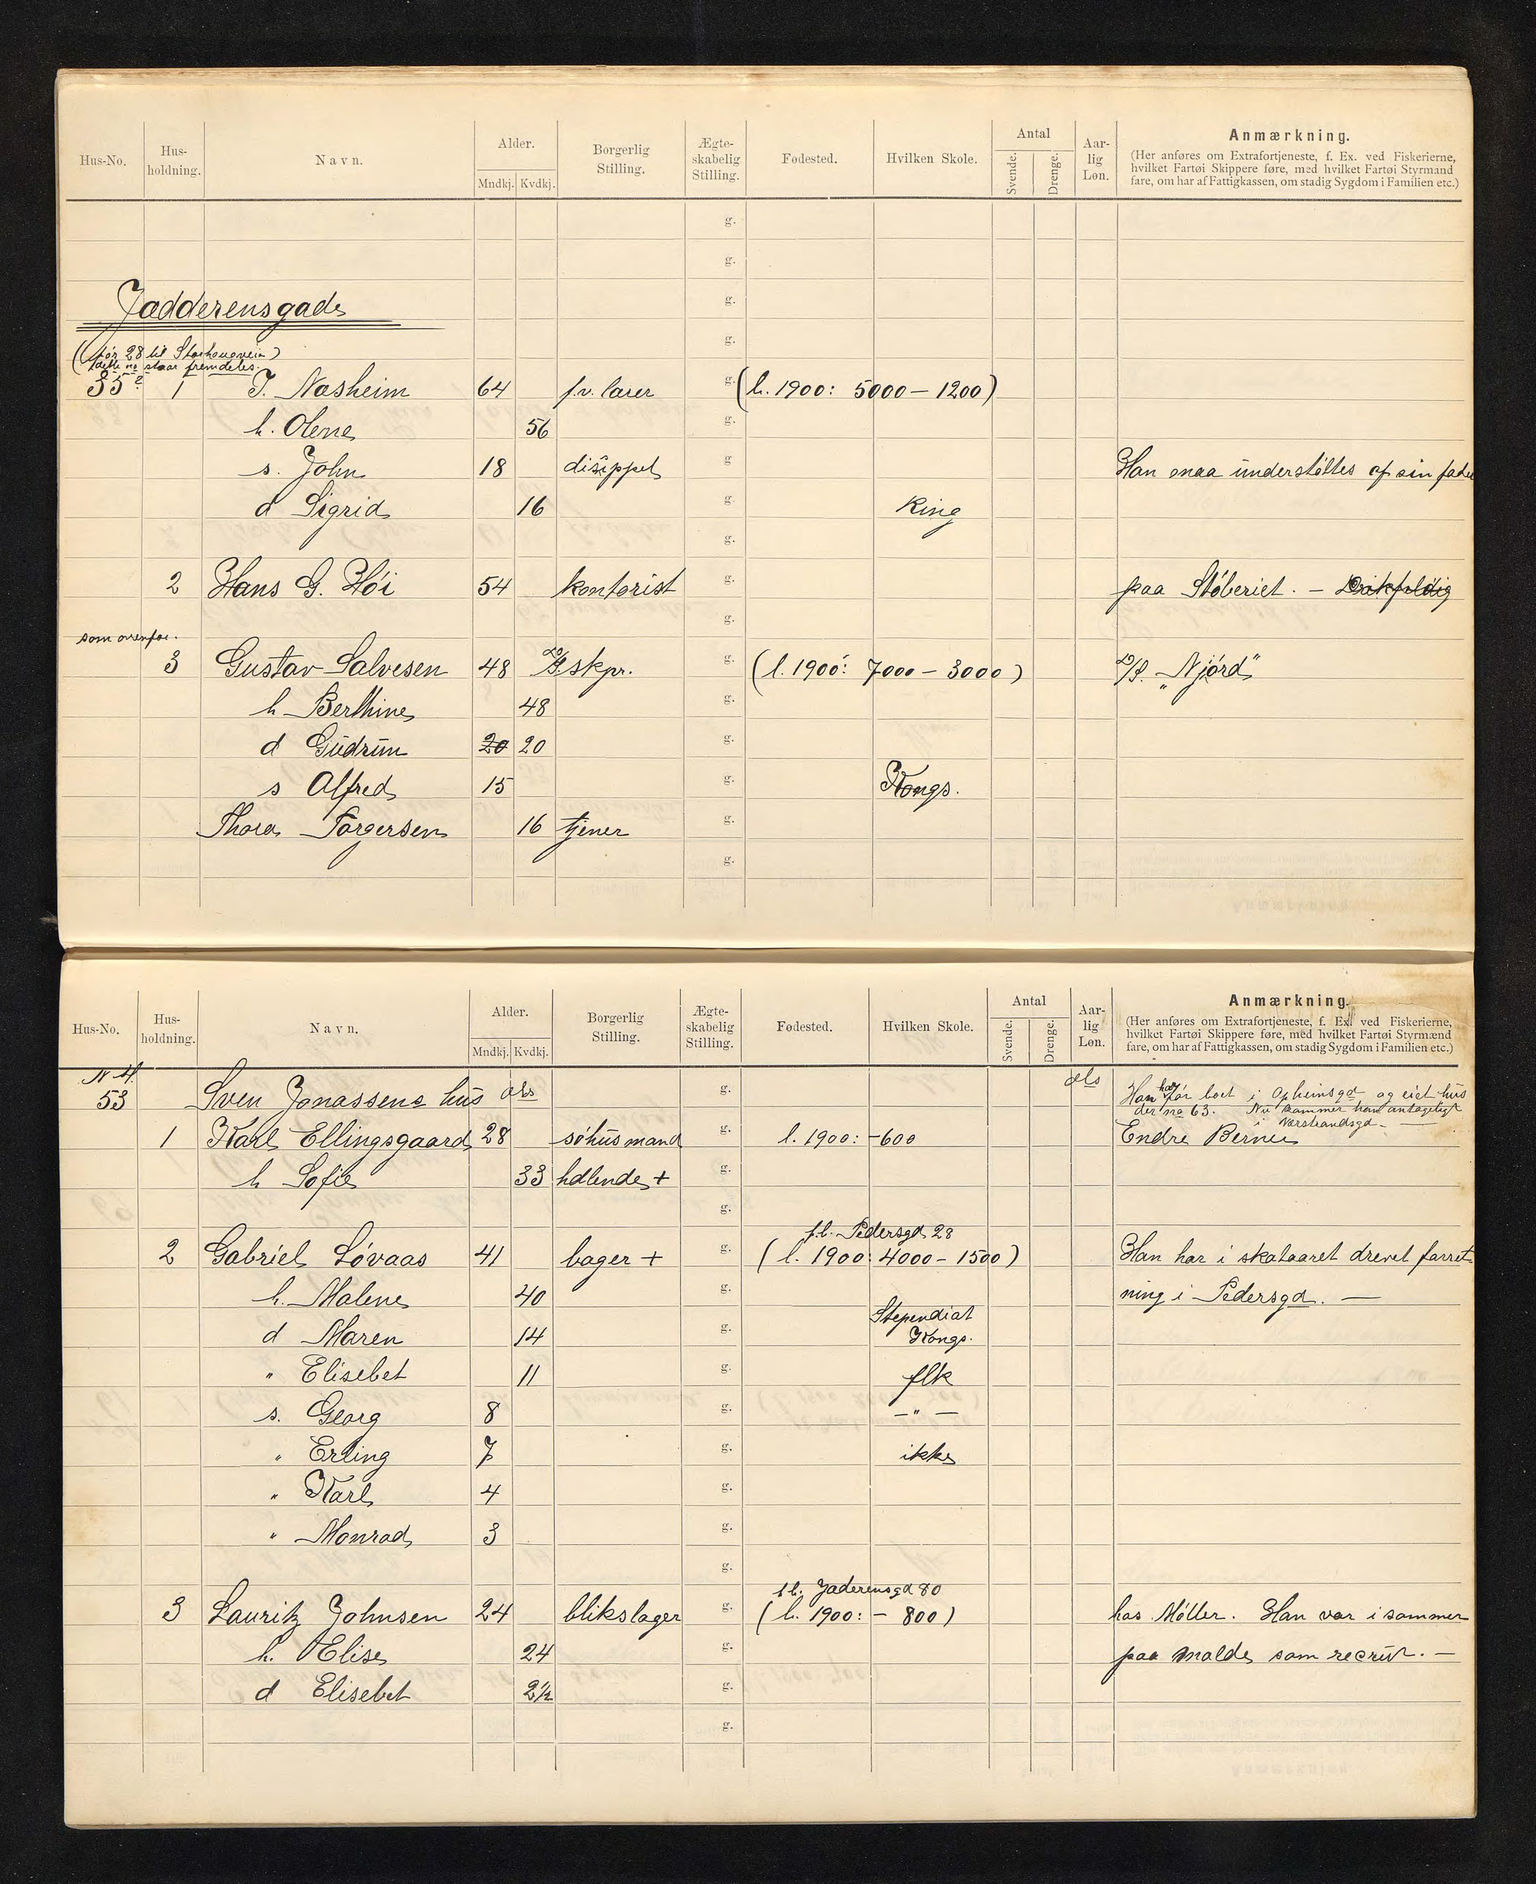 Hus-No. Hus-holdning. Navn. Alder. Mndkj. Kvdkj. Borgerlig Stilling. Ægte-skabelig Stilling. Fødested. Hvilken Skole. Antal Svende. Drenge. Aar-lig Løn. Anmærkning.
(Her anføres om Extrafortjeneste, f. Ex. ved Fiskerierne,
hvilket Fartøi Skippere føre, med hvilket Fartøi Styrmænd
fare, om har af Fattigkassen, om stadig Sygdom i Familien etc.)
g.
g.
Jadderensgade g.
g.
(før 28 til Storhougvein)
dette no staar fremdeles.
35 1 T. Næsheim 64 f.v. lærer g. (l. 1900: 5000 – 1200)
h. Olene 56 g.
s. John 18 g. Han maa understøttes af sin fader
d Sigrid 16 g. King
g.
2 Hans G. Høi 54 kontorist g. paa Støberiet. – Drikfeldig
som ovenfor. g.
3 Gustav Salvesen 48 skpr. g. (l. 1900: 7000 – 3000) D/S. "Njörd"
h Berthine 48 g.
d Gudrun 20 20 g.
s Alfred 15 g. Kongs.
Thora Torgersen 16 tjener g.
g.
Hus-No. Hus-holdning. Navn. Alder. Mndkj. Kvdkj. Borgerlig Stilling. Ægte-skabelig Stilling. Fødested. Hvilken Skole. Antal Svende. Drenge. Aar-lig Løn. Anmærkning.
(Her anføres om Extrafortjeneste, f. Ex. ved Fiskerierne,
hvilket Fartøi Skippere føre, med hvilket Fartøi Styrmænd
fare, om har af Fattigkassen, om stadig Sygdom i Familien etc.)
53 Sven Jonassens hus g. Han har før boet i Opheimsgd og eiet hus
der no 63. Nu kommer han antageligt
i Verstrandsgd. —
1 Karl Ellingsgaard 28 søhusmand g. l. 1900: – 600 Endre Berner
h Sofie 33 hdlende + g.
g.
f.b. Pedersgd 28
2 Gabriel Løvaas 41 bager + g. (l. 1900: 4000 – 1500) Han har i skataaret drevet forret
h. Malene 40 g. ning i Pedersgd. —
d Maren 14 g. Stependiat Kongs.
" Elisebet 11 g. flk
s. Georg 8 g. – " –
" Erling 7 g. ikke
" Karl 4 g.
" Monrad 3 g.
g.
f.b. Jaderensgd 80
3 Lauritz Johnsen 24 blikslager g. (l. 1900: – 800) hos Møller. Han var i sommer
h. Elise 24 g. paa Malde som recrut. —
d Elisebet 2½ g.
g.